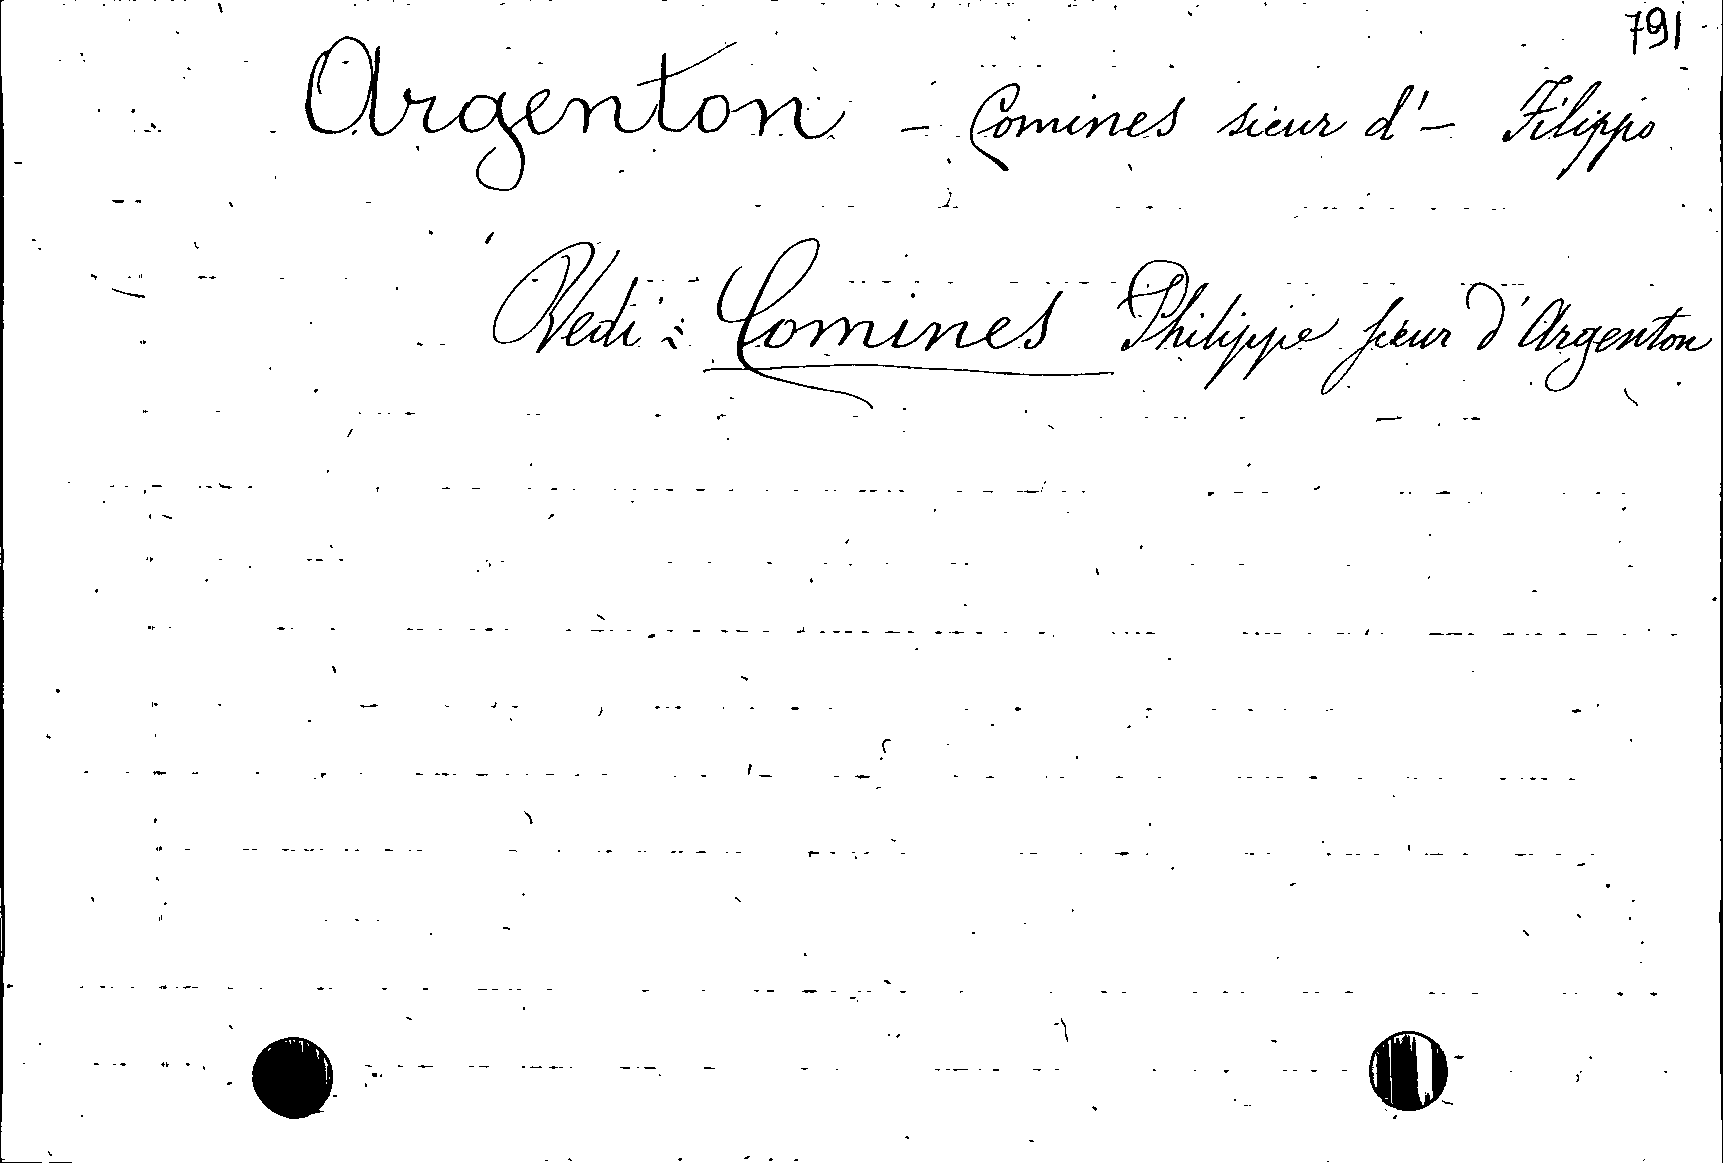 791
Argenton - Comines sieur d'- Filippo
Vedi: Comines Philippe sieur d'Argenton